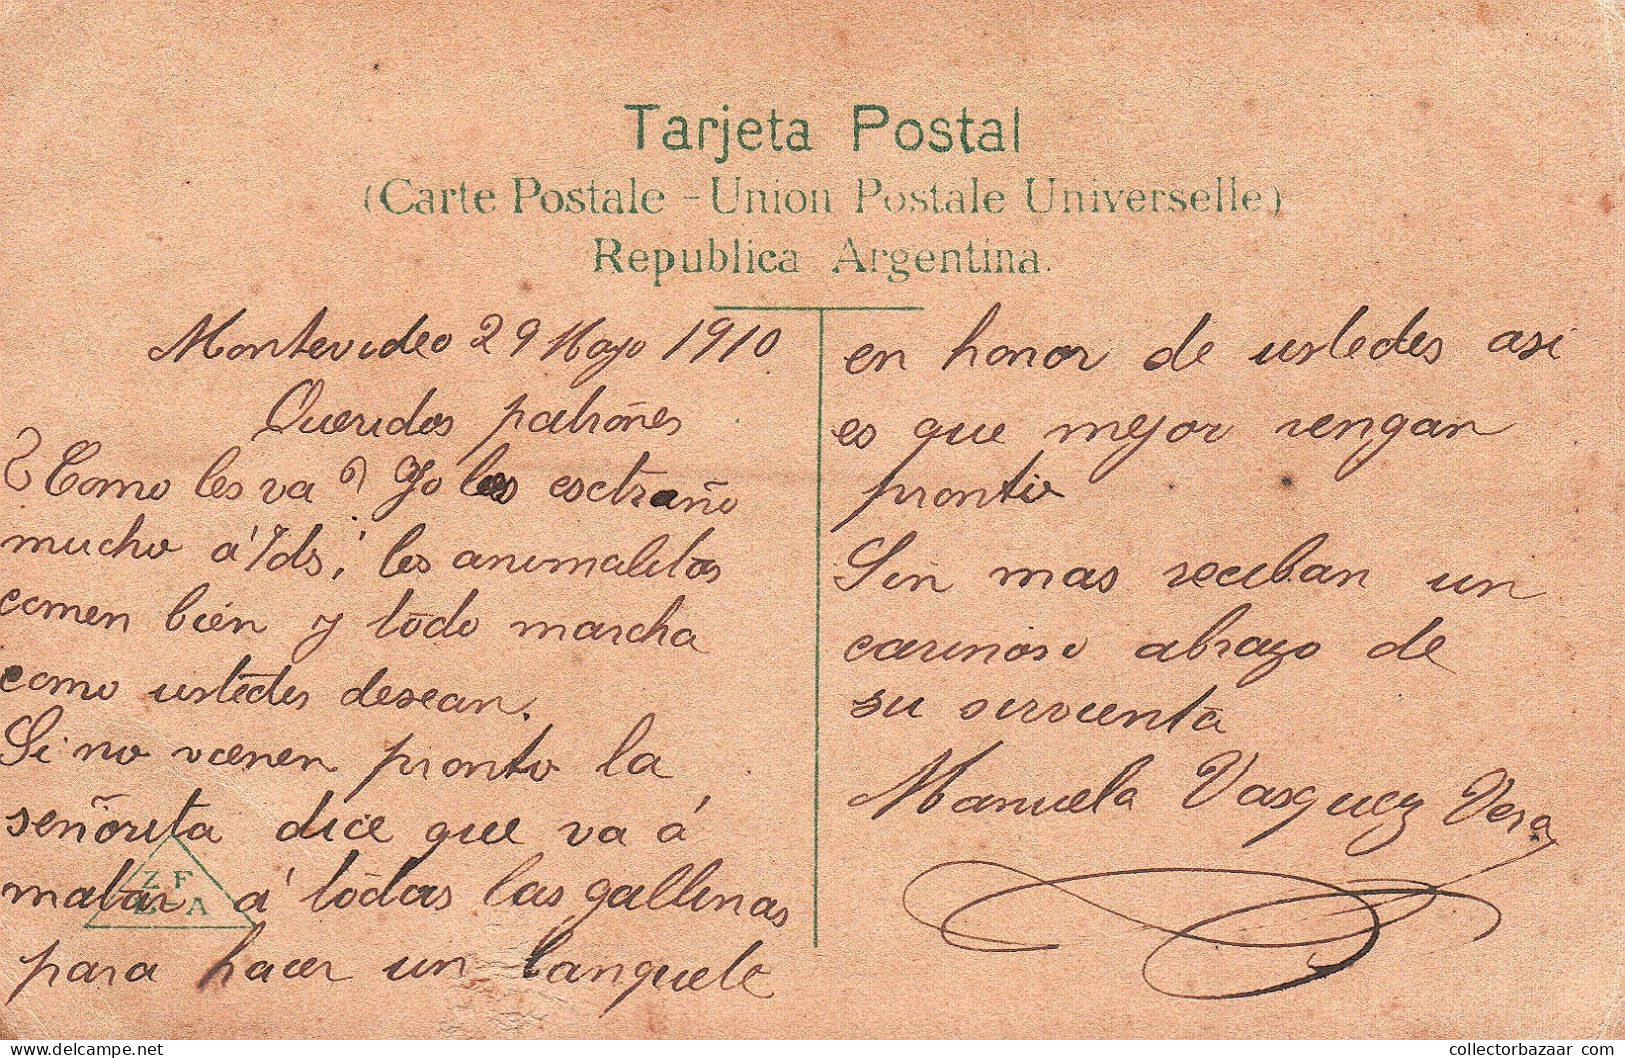 Tarjeta Postal
(Carte Postale - Union Postale Universelle)
Republica Argentina.
Montevideo 29 Mayo 1910
Queridos patrones
¿Como les va? Yo los esctraño
mucho á Vds; los animalitos
comen bien y todo marcha
como ustedes desean.
Si no vienen pronto la
señorita dice que va á
matar á todas las gallinas
para hacer un banquete
Z F
A
en honor de ustedes asi
es que mejor vengan
pronto
Sin mas reciban un
carinoso abrazo de
su sirvienta
Manuela Vasquez Vera
collectorbazar.com